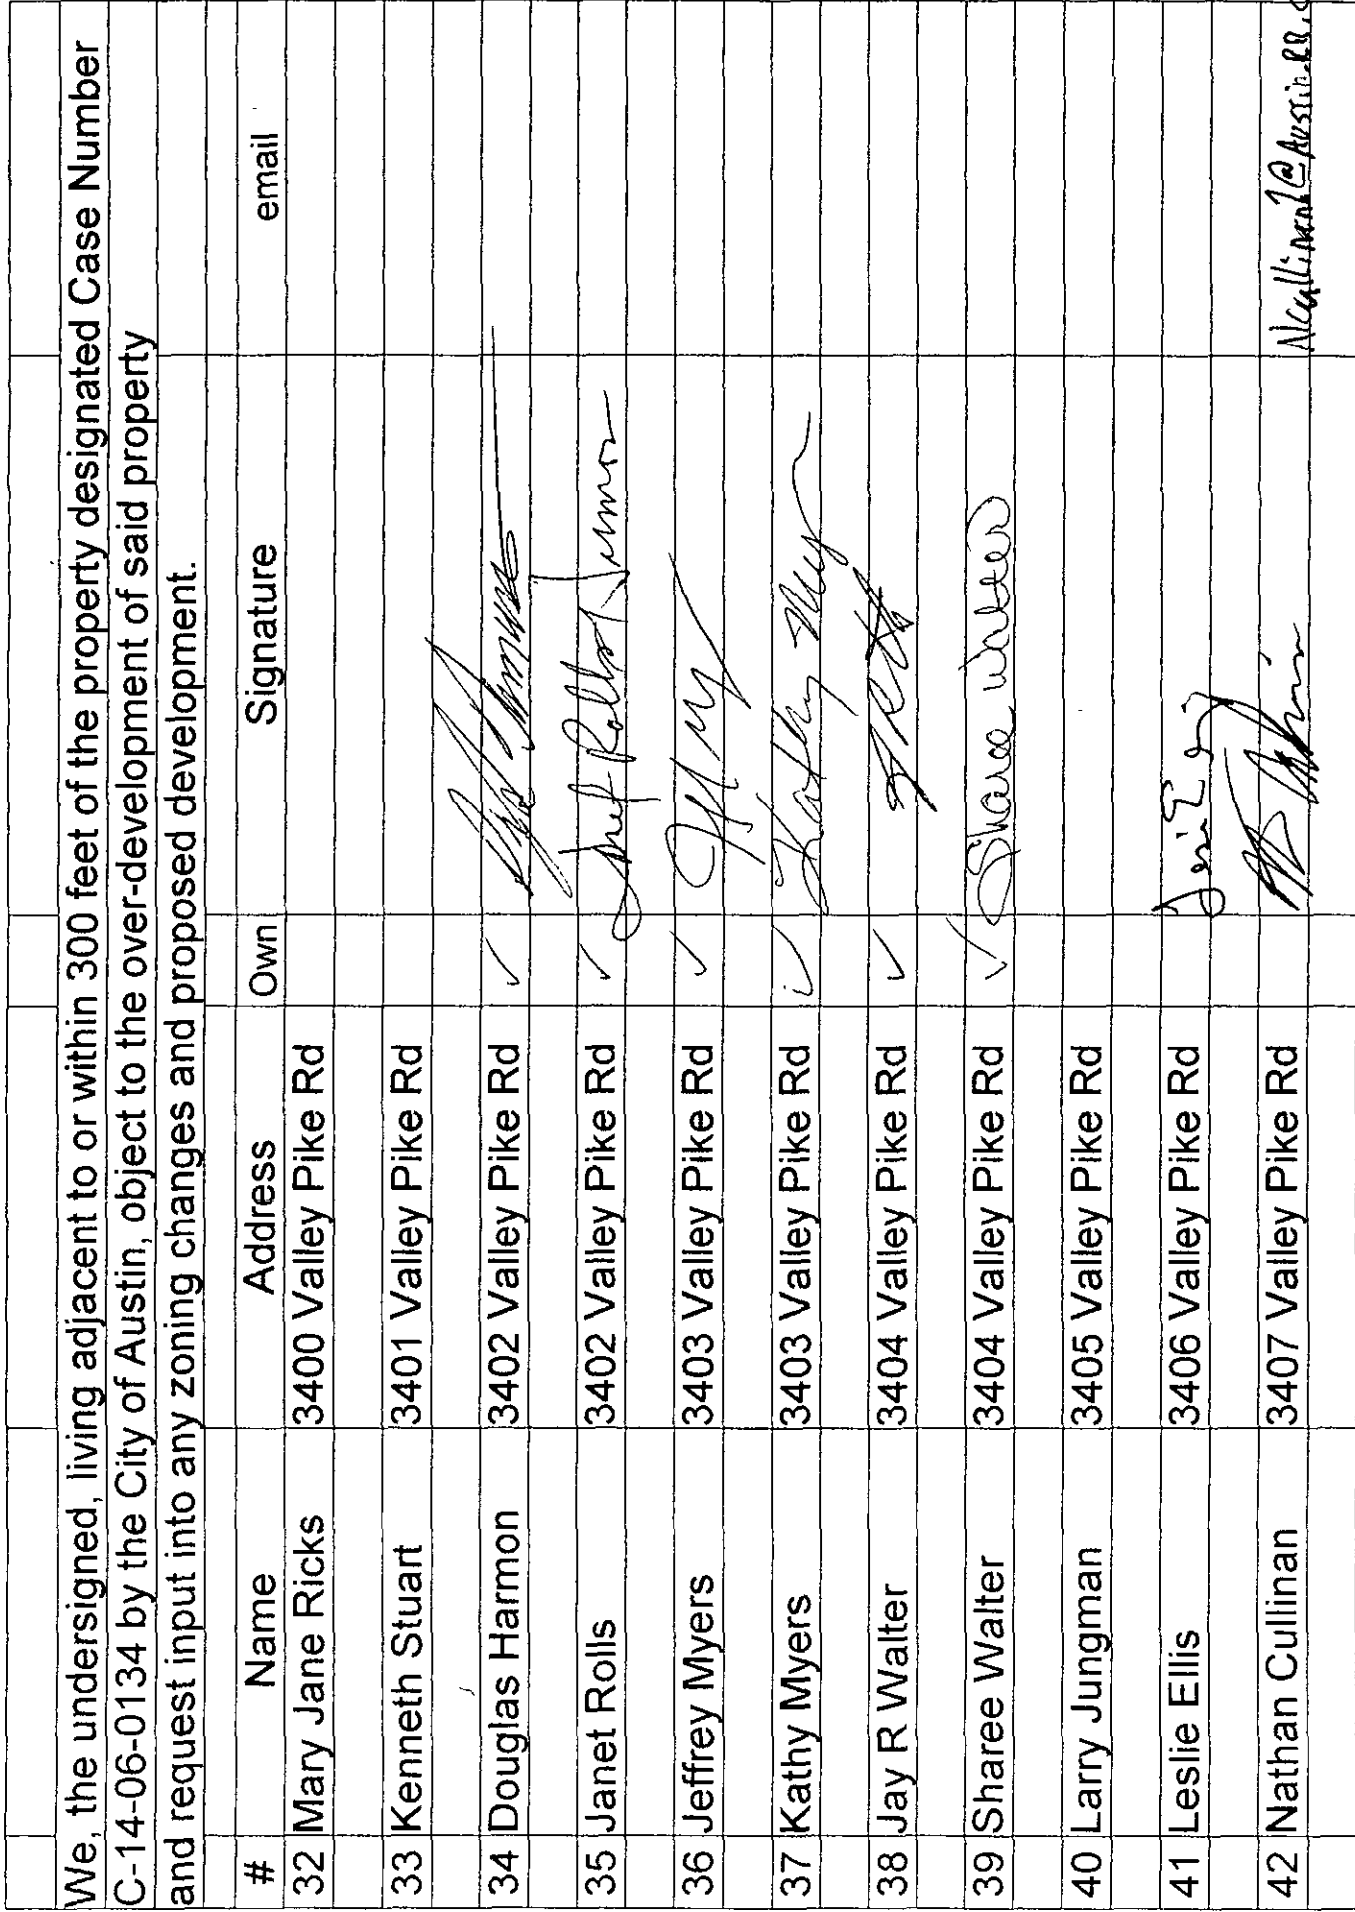 We, the undersigned, living adjacent to or within 300 feet of the property designated Case Number
C-14-06-0134 by the City of Austin, object to the over-development of said property
and request input into any zoning changes and proposed development.
# Name Address Own Signature email
32 Mary Jane Ricks 3400 Valley Pike Rd
33 Kenneth Stuart 3401 Valley Pike Rd
34 Douglas Harmon 3402 Valley Pike Rd ✓
35 Janet Rolls 3402 Valley Pike Rd ✓ Janet Rolls Harmon
36 Jeffrey Myers 3403 Valley Pike Rd ✓
37 Kathy Myers 3403 Valley Pike Rd ✓ Kathy Myers
38 Jay R Walter 3404 Valley Pike Rd ✓
39 Sharee Walter 3404 Valley Pike Rd ✓ Sharee Walter
40 Larry Jungman 3405 Valley Pike Rd
41 Leslie Ellis 3406 Valley Pike Rd
42 Nathan Cullinan 3407 Valley Pike Rd